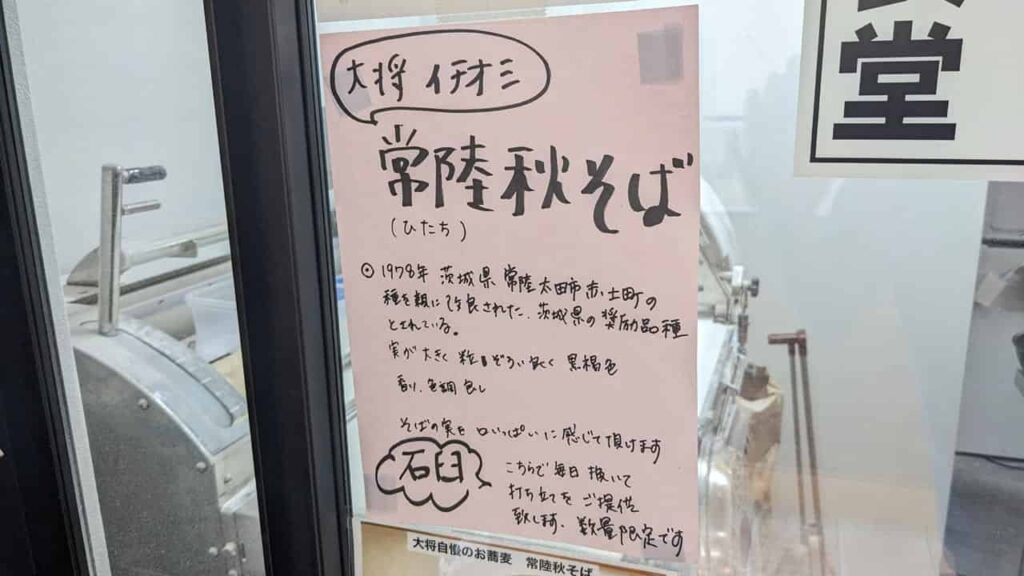 大将 イチオシ
常陸秋そば
(ひたち)
⊙ 1978年 茨城県 常陸太田市赤土町の
種を親に改良された、茨城県の奨励品種
とされている。
実が大きく 粒ぞろい良く 黒褐色
香り、色調 良し
そばの実を 口いっぱいに感じて頂けます
石臼
こちらで毎日 挽いて
打ち立てを ご提供
致します、数量限定です
大将自慢のお蕎麦 常陸秋そば
堂